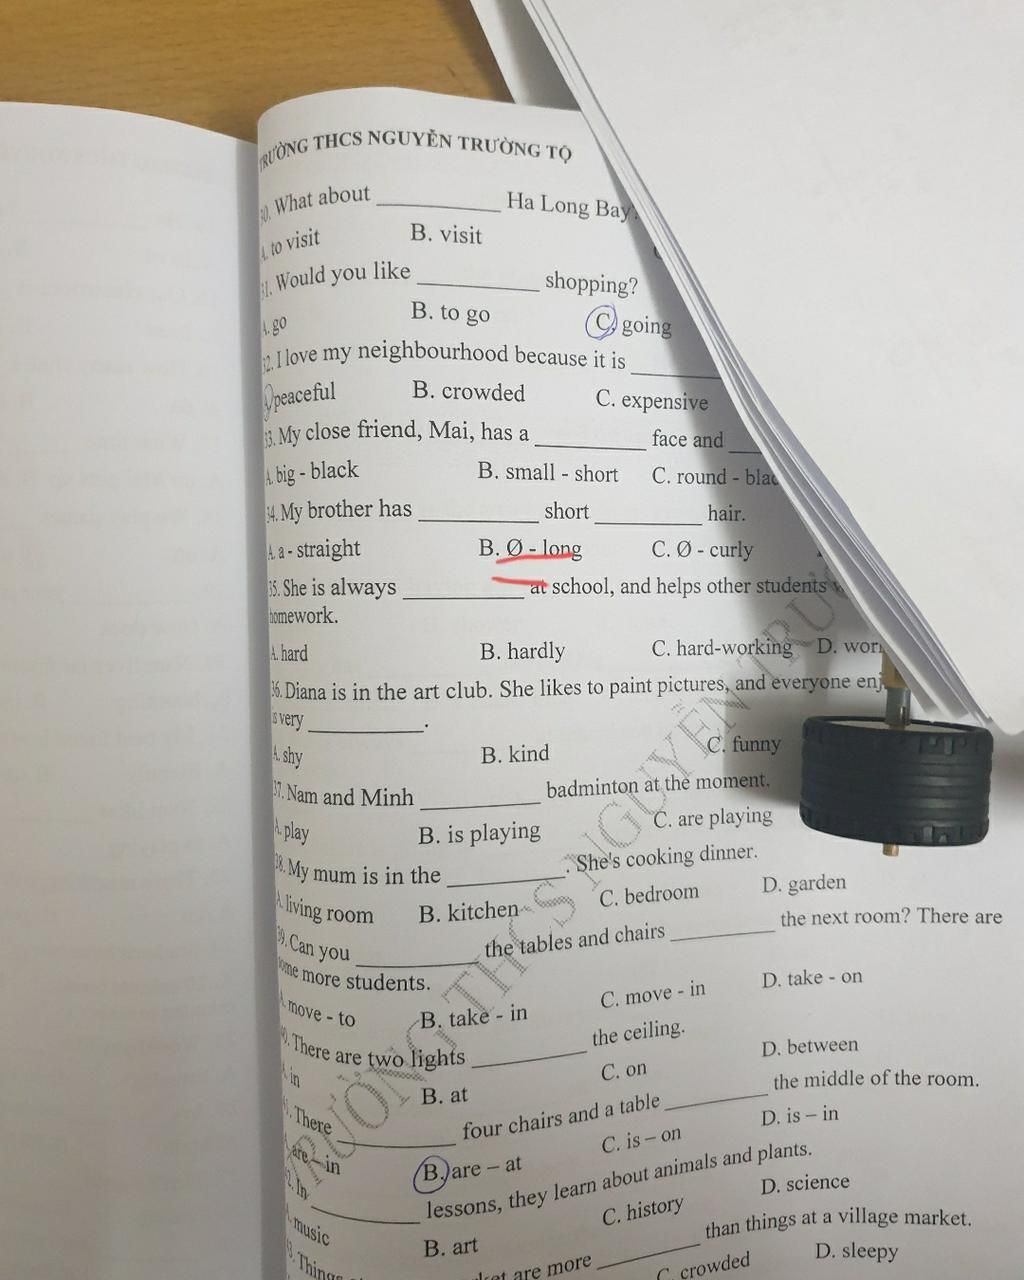 TRƯỜNG THCS NGUYỄN TRƯỜNG TỘ
30. What about __________ Ha Long Bay?
A. to visit B. visit
31. Would you like __________ shopping?
A. go B. to go C. going
32. I love my neighbourhood because it is __________
A. peaceful B. crowded C. expensive
33. My close friend, Mai, has a __________ face and
A. big - black B. small - short C. round -
34. My brother has __________ short __________ hair.
A. a - straight B. Ø - long C. Ø - curly
35. She is always __________ at school, and helps other students
homework.
A. hard B. hardly C. hard-working D.
36. Diana is in the art club. She likes to paint pictures, and everyone
is very __________.
A. shy B. kind C. funny
37. Nam and Minh __________ badminton at the moment.
A. play B. is playing C. are playing
38. My mum is in the __________. She's cooking dinner.
A. living room B. kitchen C. bedroom D. garden
39. Can you __________ the tables and chairs __________ the next room? There are
some more students.
A. move - to B. take - in C. move - in D. take - on
40. There are two lights __________ the ceiling.
A. in B. at C. on D. between
41. There __________ four chairs and a table __________ the middle of the room.
A. are – in B. are – at C. is – on D. is – in
42. In __________ lessons, they learn about animals and plants.
A. music B. art C. history D. science
43. Things are more __________ than things at a village market.
C. crowded D. sleepy
TRƯỜNG THCS NGUYỄN TRƯ